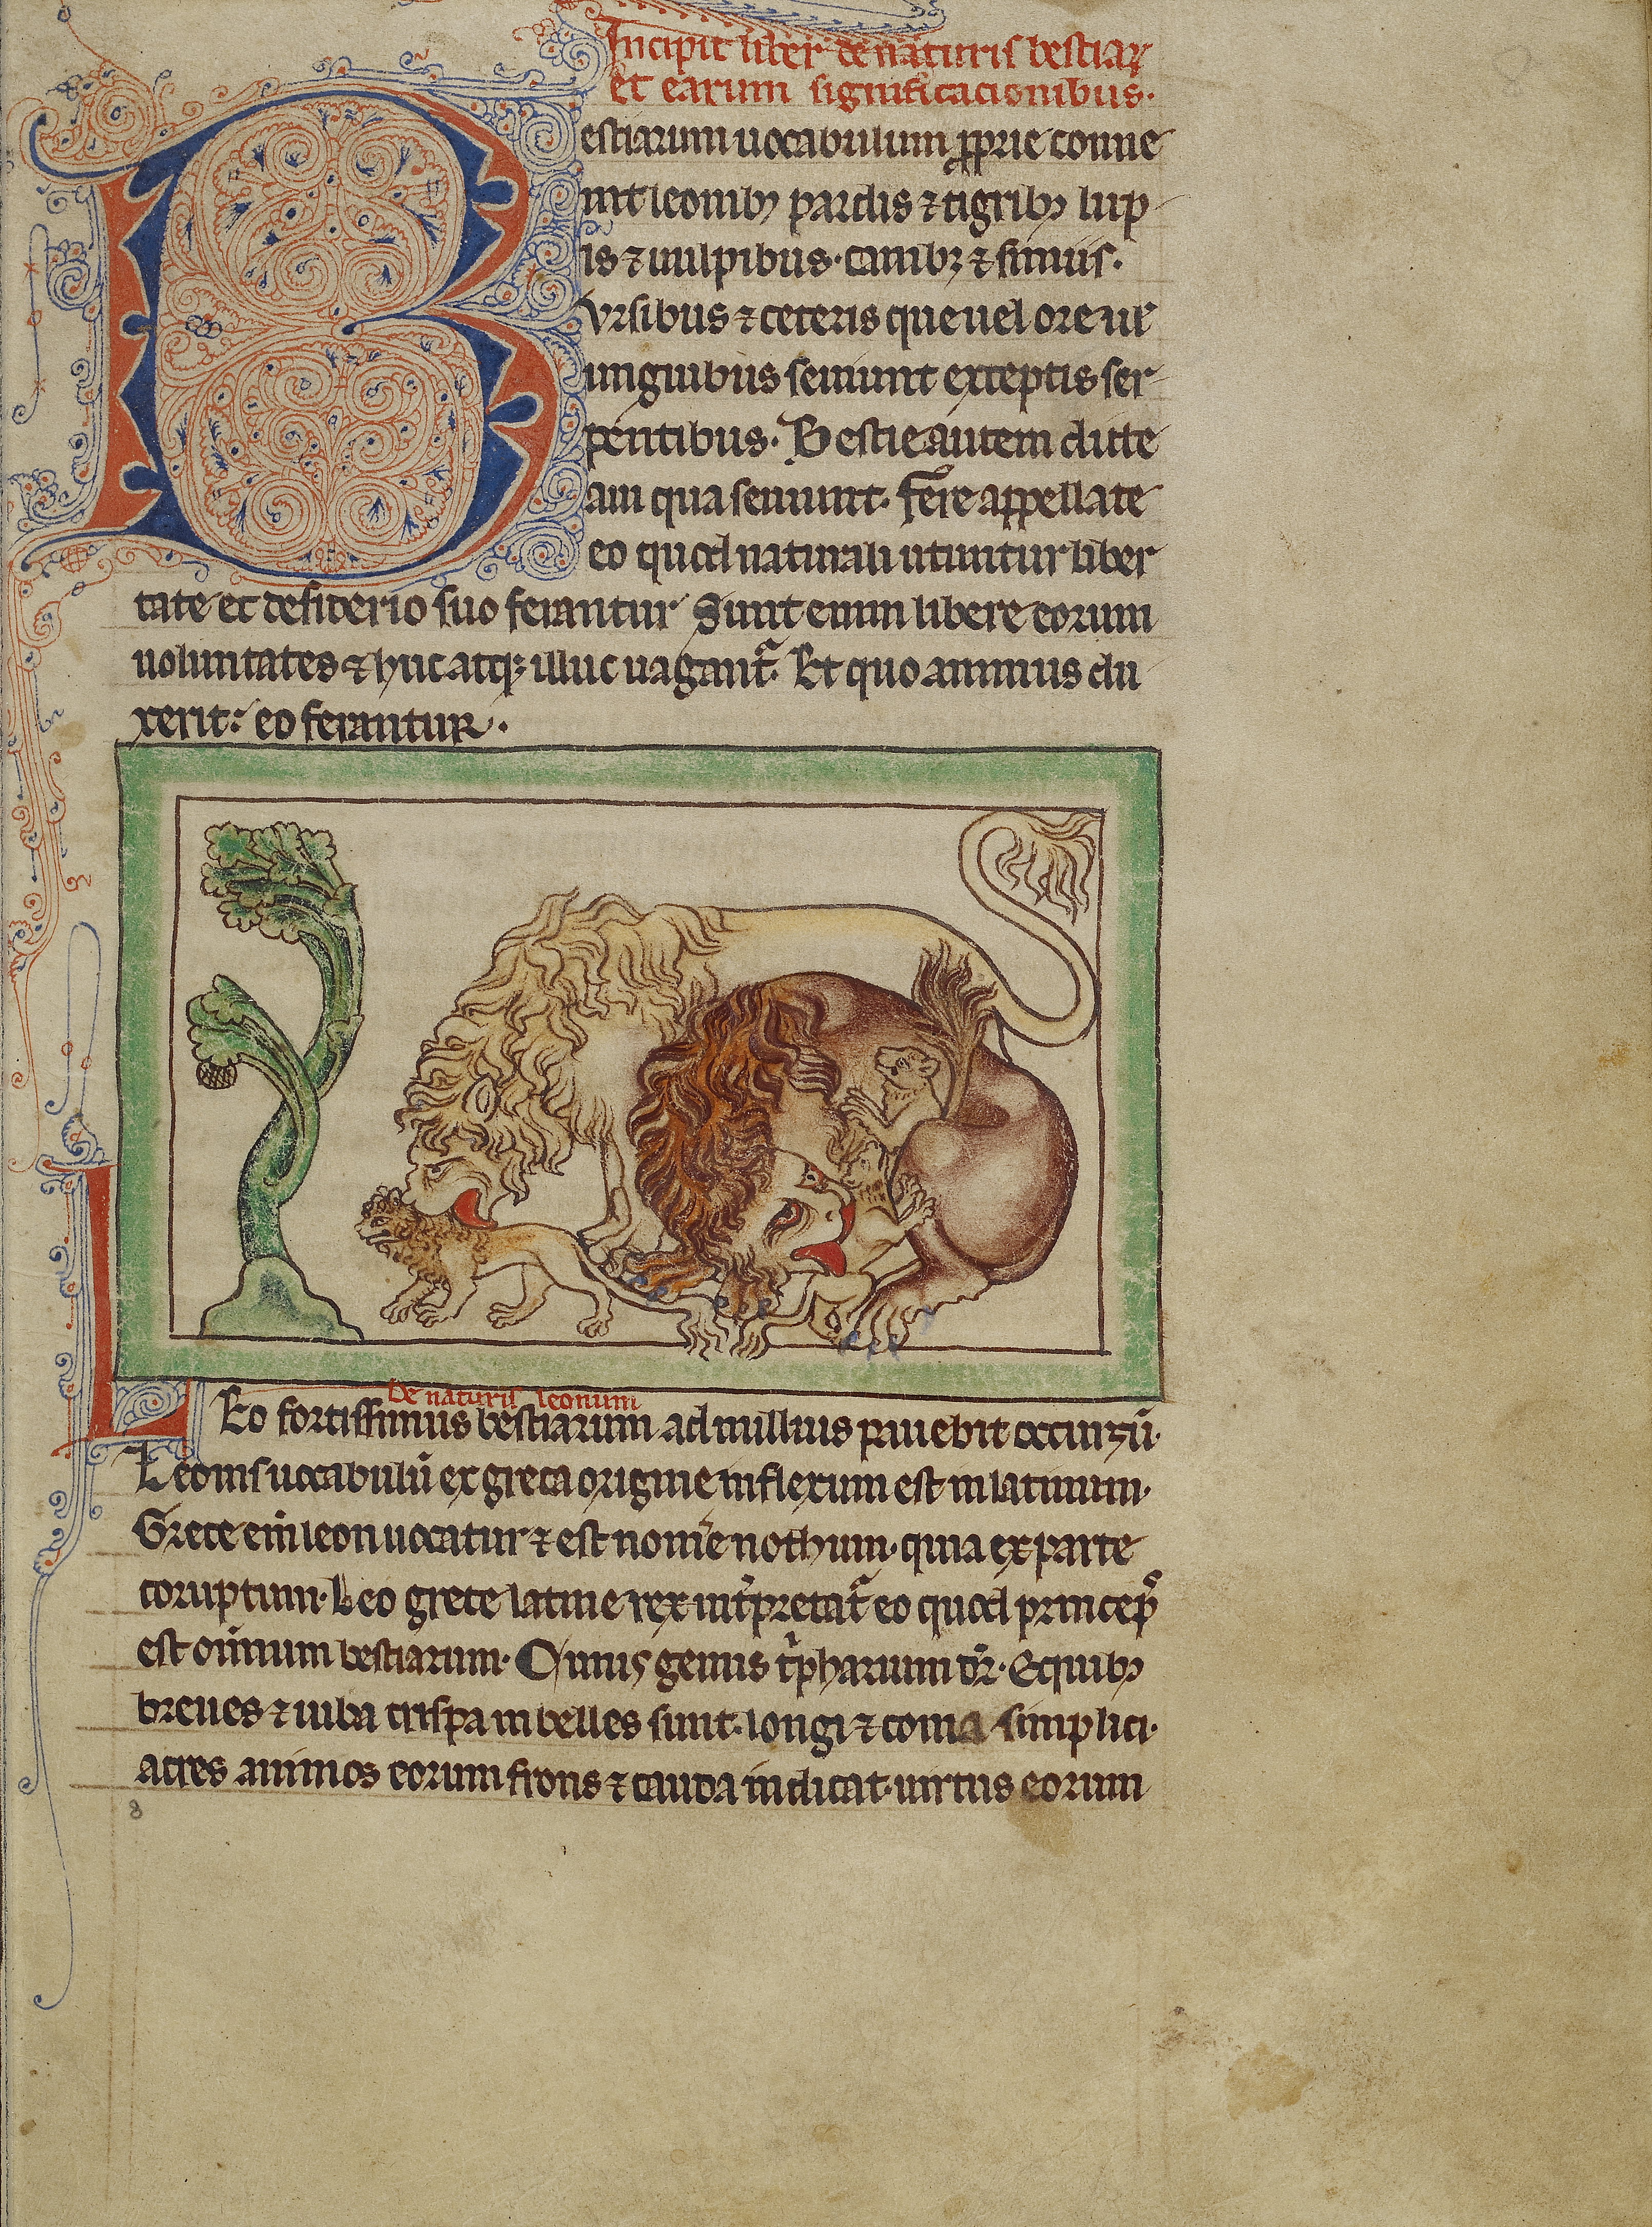 Incipit liber de naturis bestiaꝝ
et earum significacionibus.
Bestiarum uocabulum ꝓprie conue
nit leonibꝫ pardis ⁊ tigribꝫ lup
is ⁊ uulpibus. canibꝫ ⁊ simiis.
Vrsibus ⁊ ceteris que uel ore ul̵
unguibus seuiunt exceptis ser
pentibus. Bestie autem dicte
a ui qua seuiunt. fere appellate
eo quod naturali utuntur liber
tate et desiderio suo ferantur Sunt enim libere eorum
uoluntates ⁊ huc atqꝫ illuc uagantᷓ. Et quo animus du
xerit: eo ferantur.
De naturis leonum
Leo fortissimus bestiarum ad nullius pauebit occursū.
Leonis uocabulū ex greca origine inflexum est in latinum.
Grece eni̅ leon uocatur ⁊ est nom̅e nothum. quia ex parte
coruptum. Leo grece latine rex int̾pretatᷓ eo quod princeps
est om̅ium bestiarum. Cuius genus tͥpharium dr̅. Equibꝫ
breues ⁊ iuba crispa inbelles sunt. longi ⁊ coma simplici.
acres animos eorum frons ⁊ cauda indicat. uirtus eorum
8